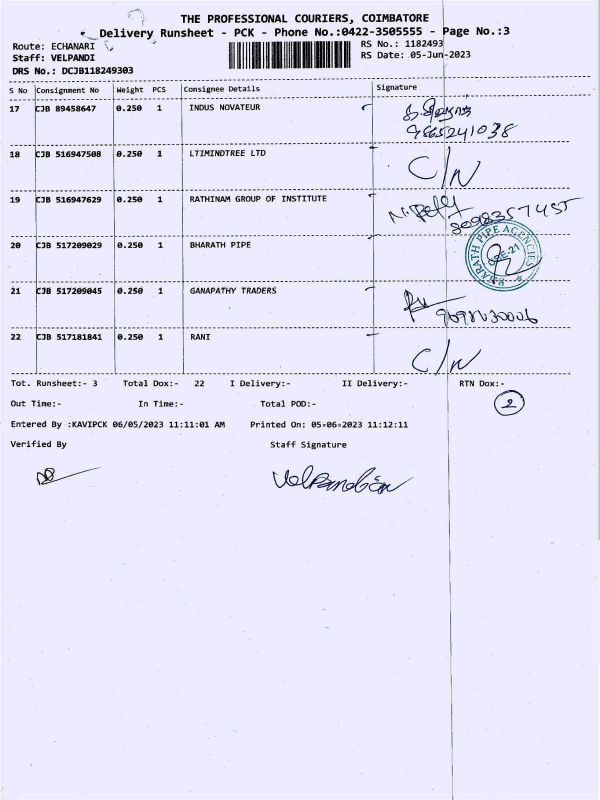 THE PROFESSIONAL COURIERS, COIMBATORE
Delivery Runsheet - PCK - Phone No.:0422-3505555 - Page No.:3
Route: ECHANARI RS No.: 1182493
Staff: VELPANDI RS Date: 05-Jun-2023
DRS No.: DCJB118249303
S No Consignment No Weight PCS Consignee Details Signature
17 CJB 89458647 0.250 1 INDUS NOVATEUR
9865241038
18 CJB 516947508 0.250 1 LTIMINDTREE LTD C/N
19 CJB 516947629 0.250 1 RATHINAM GROUP OF INSTITUTE
8098357455
20 CJB 517209029 0.250 1 BHARATH PIPE
BHARATH PIPE AGENCIES
CBE-21
21 CJB 517209045 0.250 1 GANAPATHY TRADERS
22 CJB 517181841 0.250 1 RANI C/N
Tot. Runsheet:- 3 Total Dox:- 22 I Delivery:- II Delivery:- RTN Dox:-
Out Time:- In Time:- Total POD:- 2
Entered By :KAVIPCK 06/05/2023 11:11:01 AM Printed On: 05-06-2023 11:12:11
Verified By Staff Signature
Velpandian